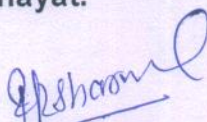 hayat.
RKSharma